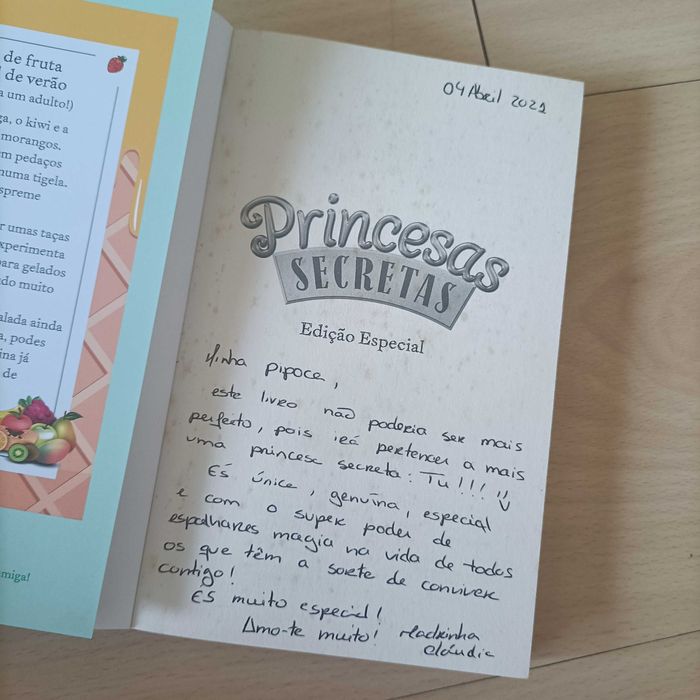 de fruta
de verão
a um adulto!)
ga, o kiwi e a
morangos.
m pedaços
numa tigela.
spreme
r umas taças
xperimenta
para gelados
do muito
alada ainda
a, podes
ina já
de
miga!
04 Abril 2021
Princesas
SECRETAS
Edição Especial
Minha pipoca,
este livro não poderia ser mais
perfeito, pois irá pertencer a mais
uma princesa secreta: Tu!!!
És única, genuína, especial
e com o super poder de
espalhares magia na vida de todos
os que têm a sorte de conviver
contigo!
És muito especial!
Amo-te muito! Madrinha
Cláudia